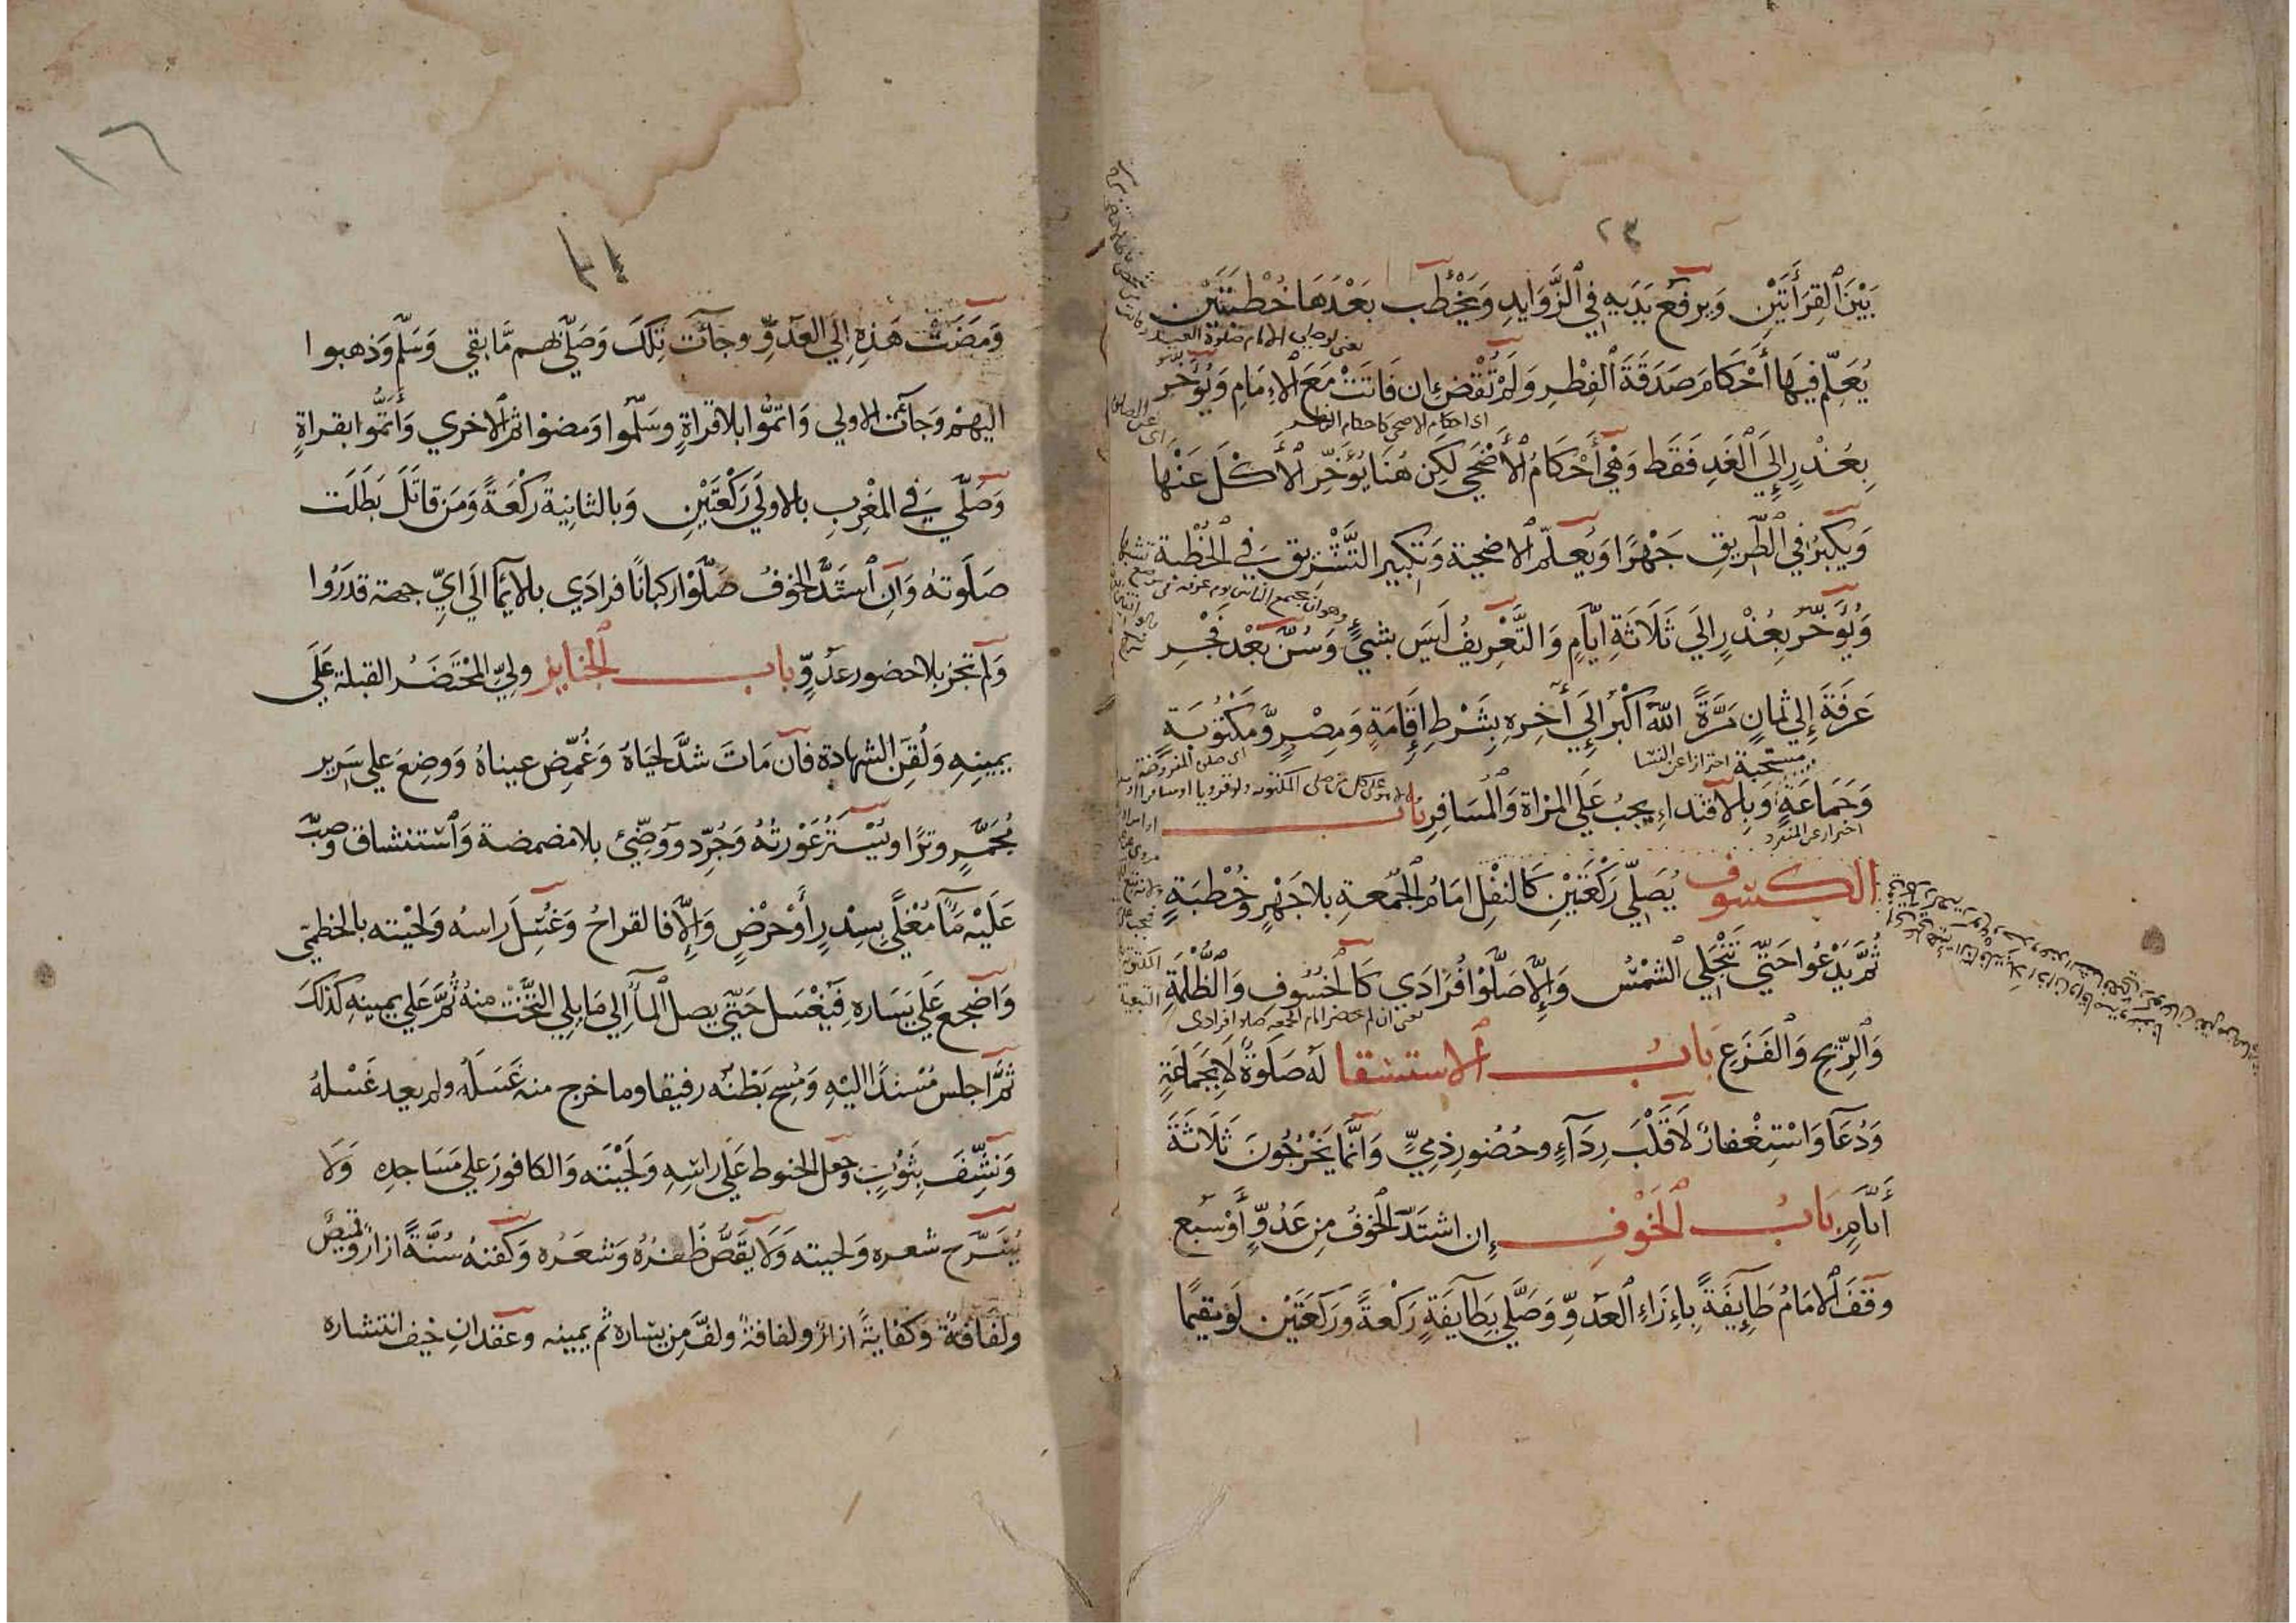 ٢٣
بَيْنَ القِرَأَتَيْنِ وَيرفَعُ يَدَيهِ فِي الزَّوَايدِ وَيَخْطُب بَعْدَهَا خُطْبَتَيْن
يعنى لو صلى الامام صلوة العيد
يُعَلِّم فِيهَا أَحْكَامَ صَدَقَةَ الفِطْرِ وَلَمْ تُقْضَ إن فَاتَتْ مَعَ الاِمَامِ وَيُؤَخَّر
اى احكام الاضحى كاحكام الفطر
بِعُذْرٍ إِلَي الغَدِ فَقَط وَهْيَ أَحْكَامُ الأَضْحَي لَكِن هُنَا يُؤَخِّر الأَكْلَ عَنْهَا
وَيُكَبِّرُ فِي الطَّرِيقِ جَهْرًا وَيُعَلِّم الاضحِيَة وَتَكبِير التَّشْرِيق فِي الخُطْبَة
وهو ان يجتمع الناس يوم عرفة فى موضع
وَيُؤَخَّرُ بِعُذْرٍ اِلَي ثَلَاثَةِ ايَّامٍ وَالتَّعْرِيفُ لَيسَ بشيءٍ وَسُنَّ بَعْد فَجْرِ
عَرَفَةَ إِلَي ثمانٍ مَرَّةً اللّٰه اكْبَر اِلَي أَخِرِهِ بِشَرْطِ إِقَامَةٍ وَمِصْرٍ وَّمَكْتُوبَةٍ
مستحبة احترازا عن النسا
وَجَمَاعَةٍ وَبِالاقتداءِ يجبُ عَلَي المرْاة وَالمُسَافِرِ بَابُ
احتراز عن المنفرد
الكسُوف يُصَلِّي رَكْعَتَيْنِ كَالنفْلِ امَامُ الجُمُعةِ بلا جَهْرٍ وخُطْبَةٍ
ثُمَّ يَدْعُوا حَتَّي تَنْجَلِي الشمْسُ وَاِلَّا صَلَّوْا فُرَادَي كَالخُسُوفِ وَالظُّلْمَةِ
يعنى ان لم يحضر امام الجمعة صلوا فرادى
وَالرِّيْحِ وَالفَزَعِ بَابُ الاستسقا لَهُ صَلَوةٌ لَا بجَمَاعَةٍ
وَدُعَآ وَاسْتِغْفارٌ لَا قَلْبَ رِدَآءٍ وحُضُور ذِمِيٍّ وَانَّمَا يَخْرُجُونَ ثَلَاثَةَ
أيَّامٍ بَابُ الخَوْفِ إِن اشتَدَّ الخَوْفُ مِن عَدُوٍّ أَوْ سَبع
وقَفَ الامَامُ طَايِفَةً بِاِزَاءِ العَدوِّ وَصَلَّي بِطَايفَةٍ رَكْعَةً وَرَكعَتَيْن لَوْ مقيمًا
وَمَضَتْ هَذِهِ اِلَي العَدوِّ وجَآت تِلكَ وَصَلَّي بهم مَّا بَقي وَسَلَّم وَذهبوا
اليهْم وَجَآت الاولي وَاتمُّوا بلا قراةٍ وسَلّموا وَمضوا ثم الاخري وَأَتمُّوا بقراةٍ
وَصَلّي فِي المغْرِب بالاولَي رَكْعَتَيْنِ وَبالثانِية رَكْعَةً وَمَن قاتَلَ بَطَلَت
صَلَوتهُ وَاِن اشتَدَّ الخوفُ صَلَّوْا ركبانًا فرادَي بالايمَا اِلَي ايِّ جهة قدَرُوا
وَلَم تجز بلا حضور عدوٍّ باب الجنايز ولِيَ المحْتَضَرُ القبلة عَلَي
يمينِهِ وَلُقِنَ الشهادة فان مَاتَ شدَّ لحيَاهُ وَغُمِّض عيناهُ وَوضِعَ علي سَرير
مُجَمَّرٍ وترًا ويُسْتَر عَوْرتهُ وَجُرِّد ووضِّئ بلا مضمضة وَاستنشاق وصبّ
عَلَيْه مَآ مُغْلًي بِسِدْرٍ أَوْ حرْضٍ وَالَّا فالقراحُ وَغُسِلَ راسهُ وَلحْيته بالخطميّ
وَاضجِعَ عَلَي يَسَارهِ فيُغْسَل حَتَّي يصل المآ اِلَي مَا يلي التَّخْت منهُ ثُمَّ عَلَي يمينهِ كذلكَ
ثُمَّ اجلس مُسْندًا اليْهِ وَمُسِح بَطْنُه رفيقا وما خرج منه غَسَلَهُ ولم يعد غَسْلهُ
وَنشِّفَ بِثوْبٍ وجعل الحنوط عَلَي راسِهِ وَلَحْيَتَه وَالكافورَ علي مَسَاجدِه وَلَا
يُسَرَّح شعره وَلحيته وَلَا يقَصُّ ظفرُهُ وَشعَرُه وَكفنهُ سُنَّةً ازارٌ وقميصٌ
ولفَافَةٌ وَكفايَةً ازارٌ ولفافَةٌ ولفَّ مِن يسَاره ثم يمينِه وعقدان خيف انتشاره